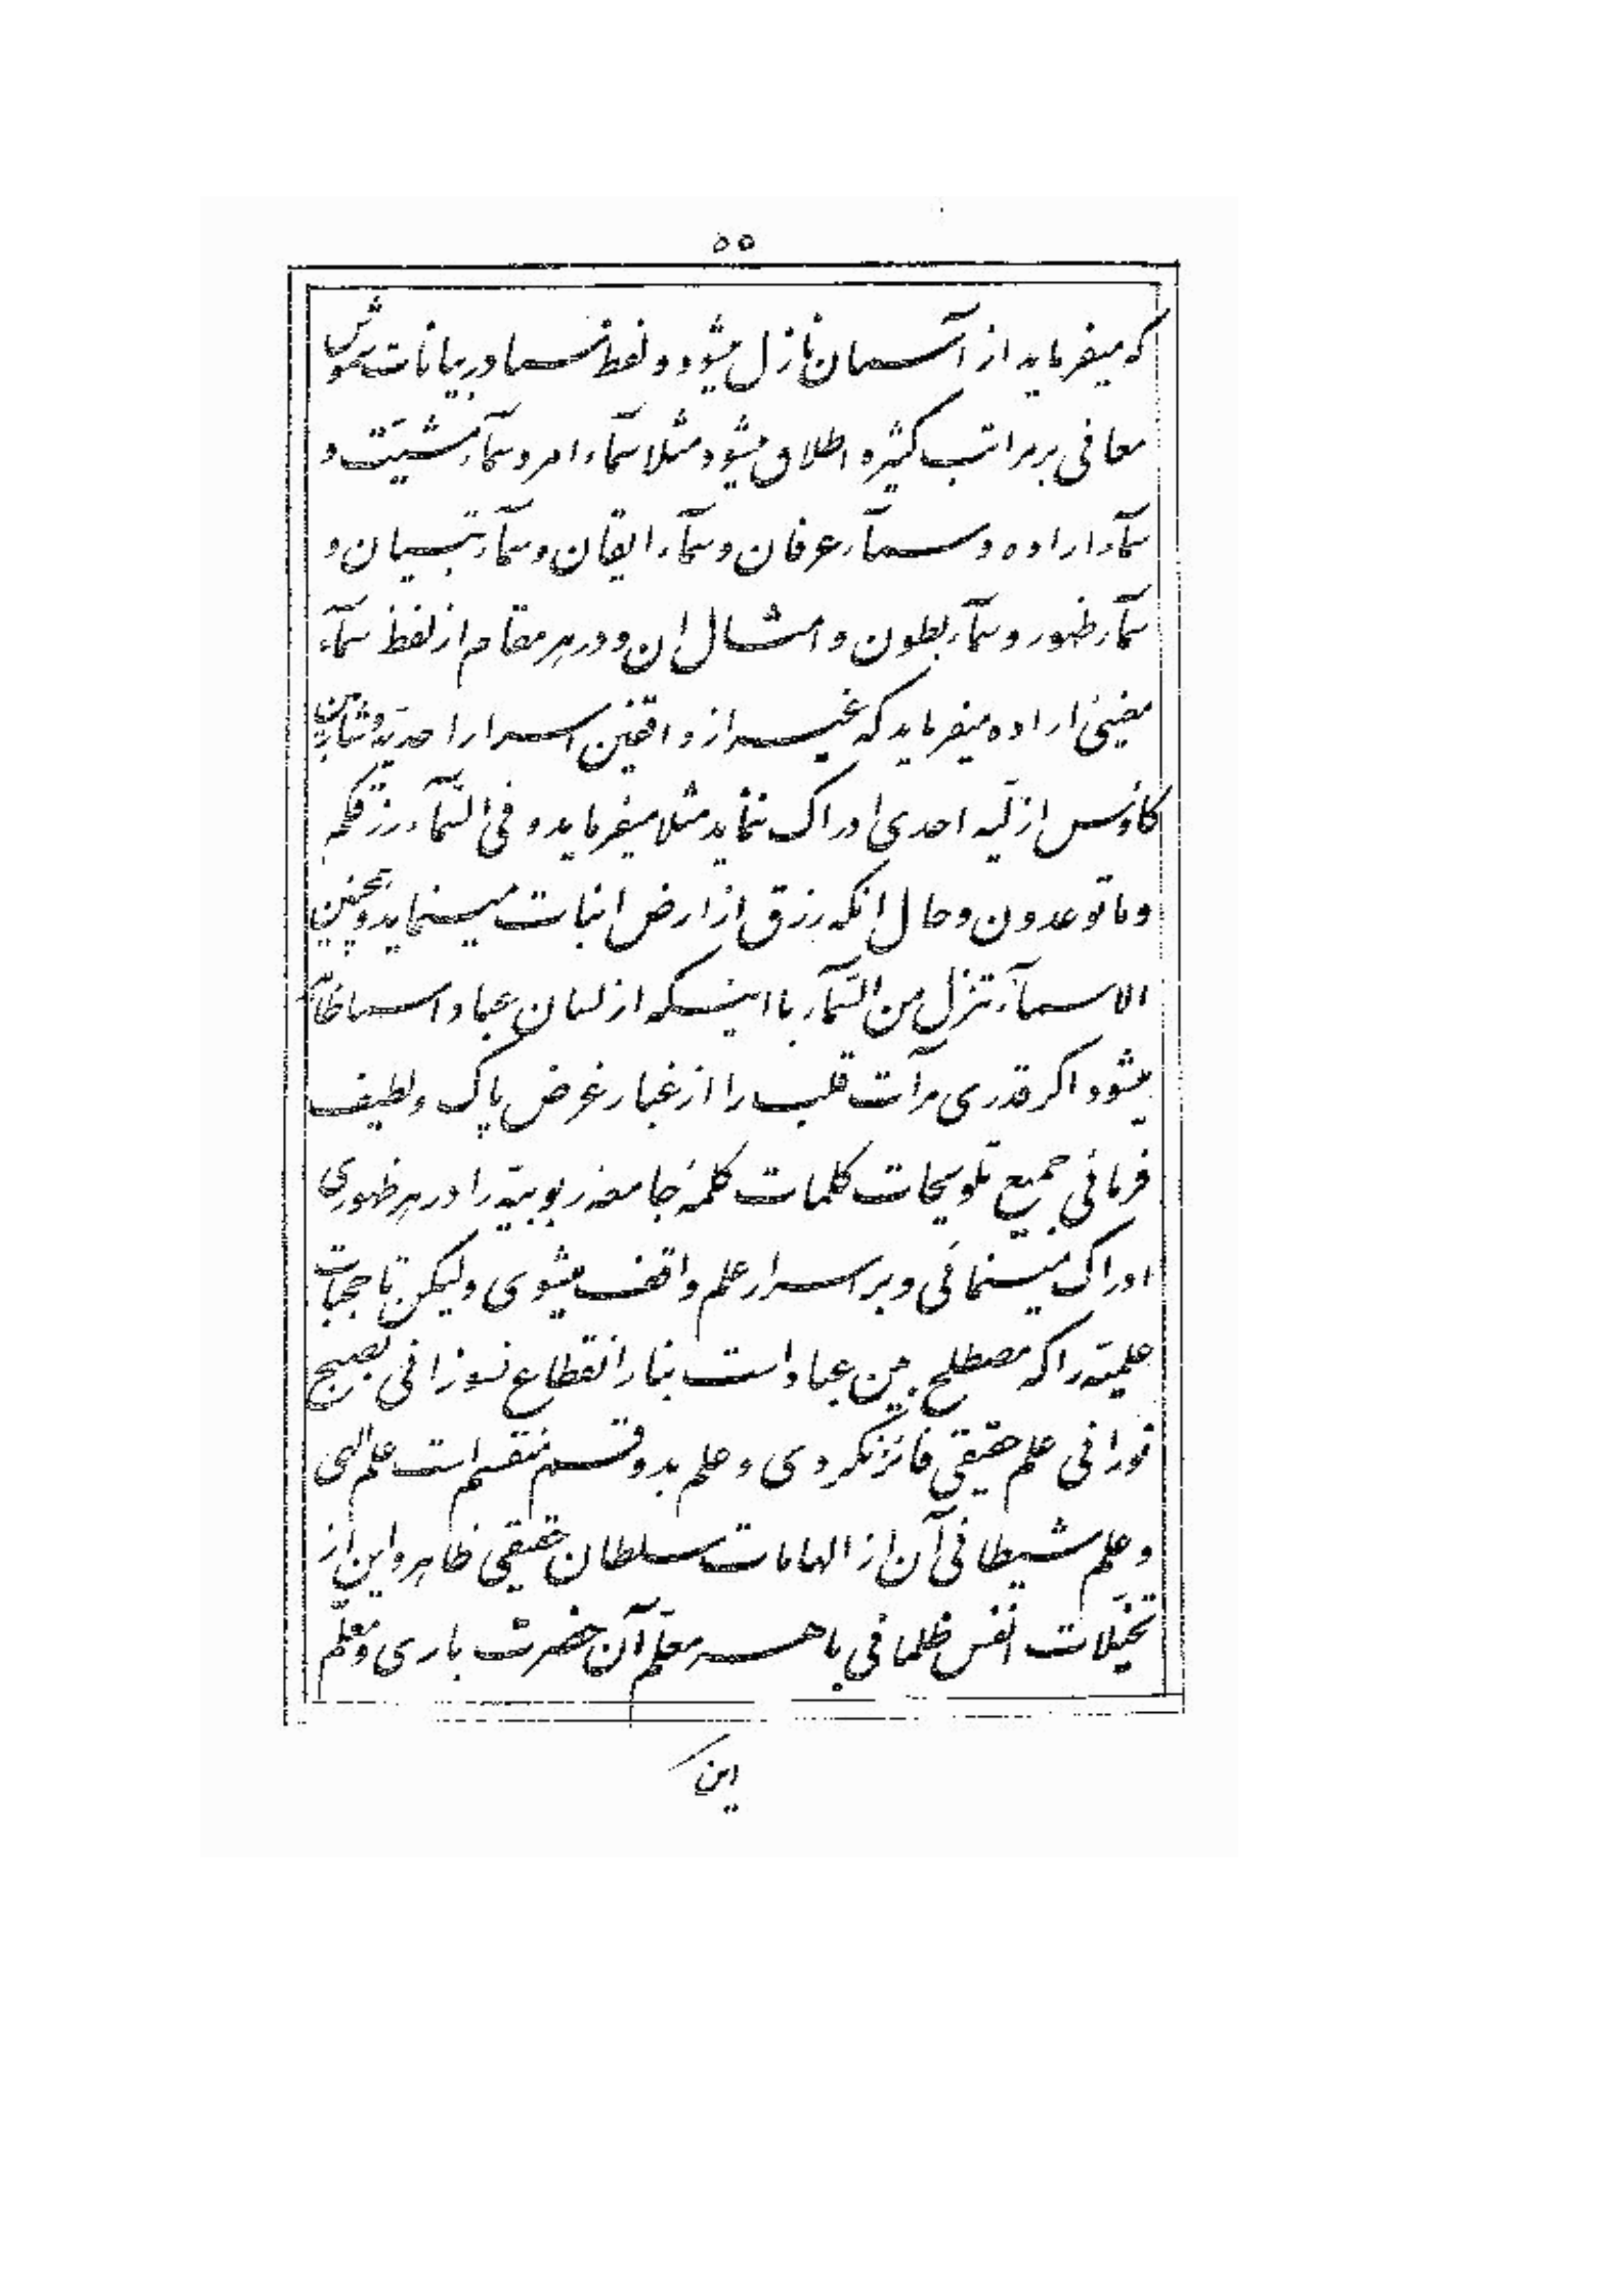 ۵۵
که میفرماید از آسمان نازل میشود و لفظ سما در بیانات شموس
معانی بر مراتب کثیره اطلاق میشود مثلا سمآء امر و سمآء مشیّت و
سمآء اراده و سمآء عرفان و سمآء ایقان و سمآء تبیان و
سمآء ظهور و سمآء بطون و امثال ان و در هر مقام از لفظ سمآء
معنیئ اراده میفرماید که غیر از واقفین اسرار احدیّه و شاربین
کاؤس ازلیّه احدی ادراک ننماید مثلا میفرماید و فی السّمآء رزقکم
و ما توعدون و حال انکه رزق از ارض انبات مینماید و همچنین
الاسمآء تنزل من السّمآء با اینکه از لسان عباد اسما ظاهر
میشود اکر قدری مرآت قلب را از غبار غرض پاک و لطیف
فرمائی جمیع تلویحات کلمات کلمهٔ جامعهٔ ربوبیّه را در هر ظهوری
ادراک مینمائی و بر اسرار علم واقف میشوی ولیکن تا حجبات
علمیّه را که مصطلح بین عباد است بنار انقطاع نسوزانی بصبح
نورانی علم حقیقی فائز نکردی و علم بدو قسم منقسم است علم الهی
و علم شیطانی آن از الهامات سلطان حقیقی ظاهر و این از
تخیّلات انفس ظلمانی باهر معلّم آن حضرت باری و معلّم
این